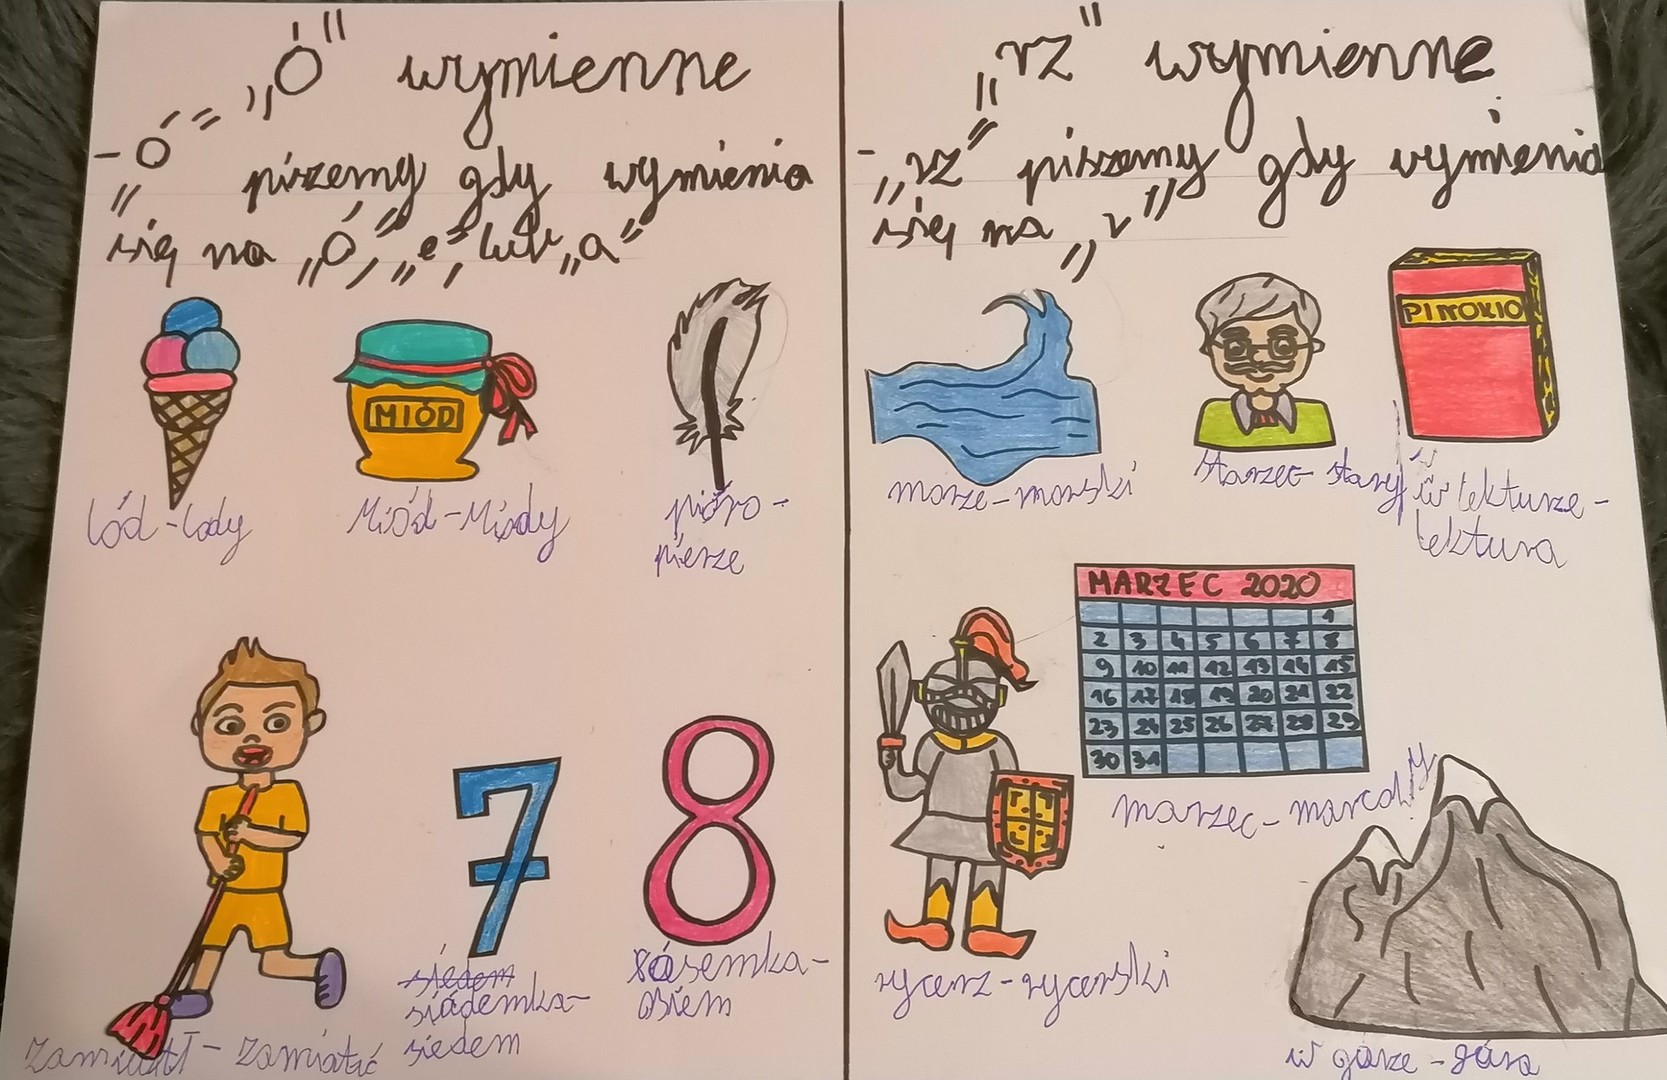 „Ó" wymienne
- „Ó" piszemy gdy wymienia
się na „Ó", „e", lub „a"
MIÓD
lód - lody
Miód - Miody
pióro -
pierze
zamiótł - zamiatać
siedem
siódemka -
siedem
ósemka -
osiem
„rz" wymienne
- „rz" piszemy gdy wymienia
się na „r"
PINOKIO
morze - morski
starzec - stary
w lekturze -
lektura
MARZEC 2020
1
2 3 4 5 6 7 8
9 10 11 12 13 14 15
16 17 18 19 20 21 22
23 24 25 26 27 28 29
30 31
marzec - marcowy
rycerz - rycerski
w górze - góra